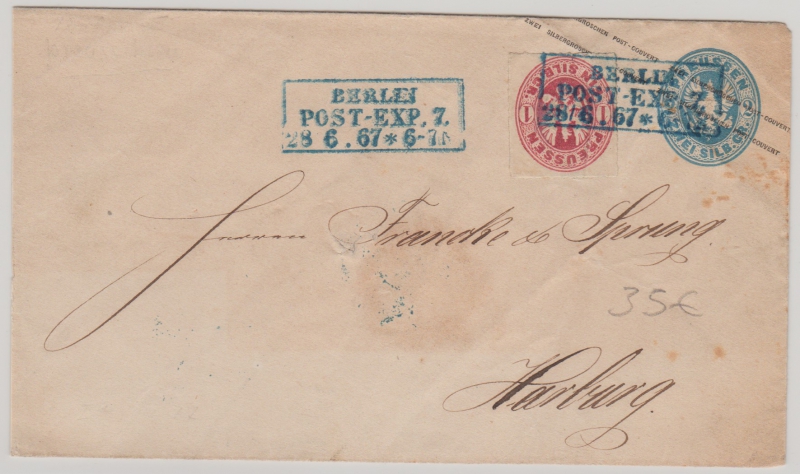 ZWEI SILBERGROSCHEN POST-COUVERT
BERLIN
POST-EXP. 7.
28 6. 67 * 6-7 N
1 PREUSSEN 1
EIN SILB. GR.
BERLIN
POST-EXP. 7.
28 6. 67 * 6-
PREUSSEN
2
ZWEI SILB. GR.
COUVERT
Herren Francke & Sprung.
35€
Harburg.